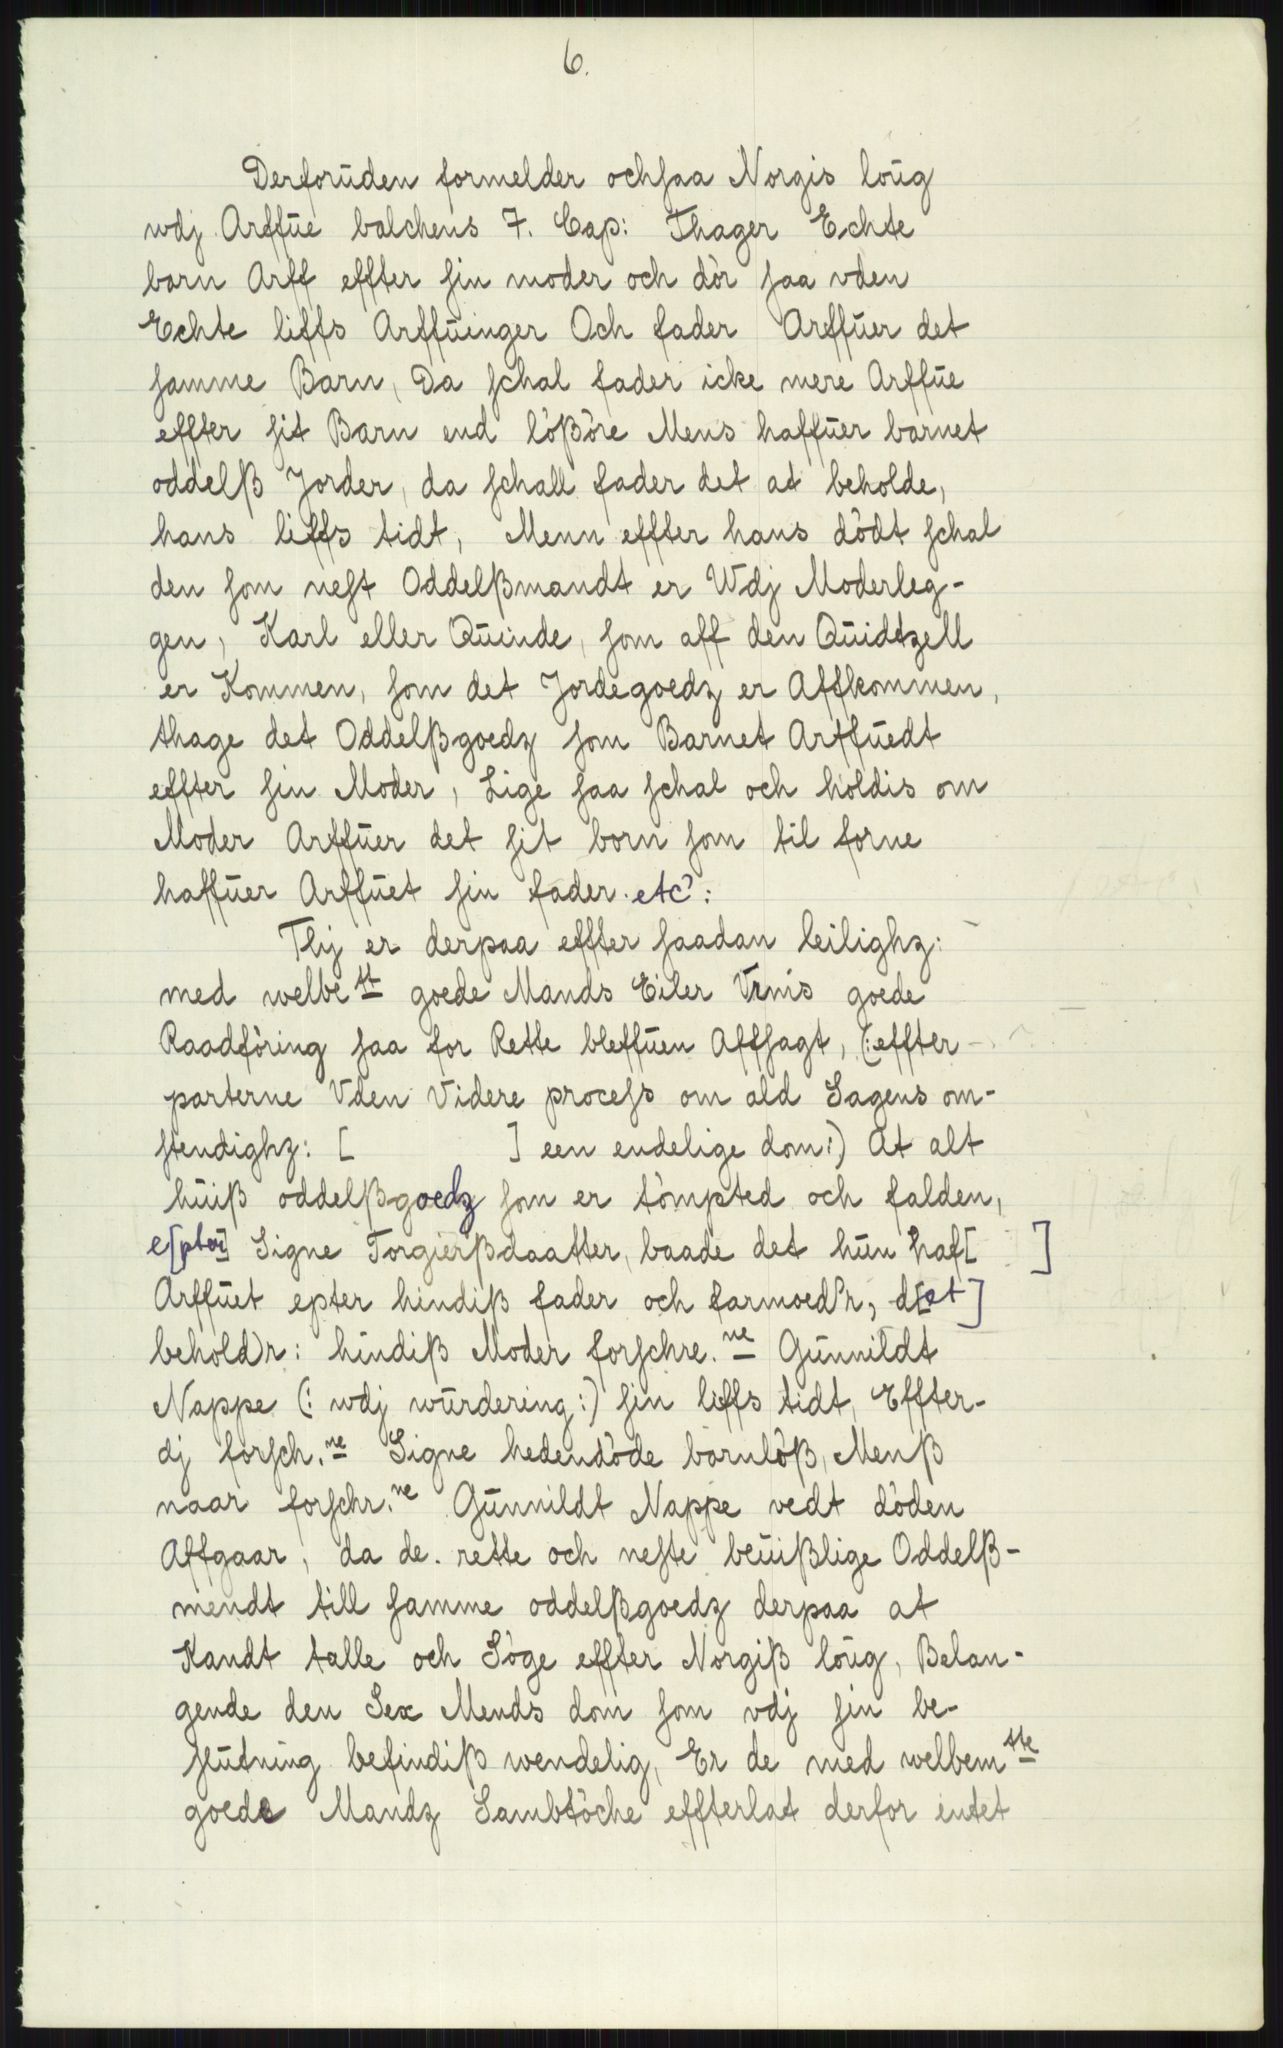 6.
Derforuden formelder ochsaa Norgis loug
wdj Arffue balchens 7. Cap: Thager Echte
barn Arff effter sin moder och dör saa vden
Echte liffs Arffuinger Och fader Arffuer det
samme Barn, Da schal fader icke mere Arffue
effter sit Barn end lößöre Mens haffuer barnet
oddelß Jorder, da schall fader det at beholde,
hans liffs tidt, Menn effter hans dödt schal
den som nest Oddelßmandt er Wdj Moderleg-
gen, Karl eller Quinde, som aff den Quidtzell
er Kommen, som det Jordegoedz er Affkommen,
thage det Oddelßgoedz som Barnet Arffuedt
effter sin Moder, Lige saa schal och holdis om
Moder Arffuer det sit born som til forne
haffuer Arffuet sin fader. etc:
Thj er derpaa effter saadan leilighz:
med welbe tt goede Mands Eiler Vrnis goede
Raadföring saa for Rette bleffuen Affsagt, (: effter
parterne Vden Videre process om ald Sagens om-
stendighz: [ ] een endelige dom:) At alt
huiß oddelßgoedz som er tömpted och falden,
e[pter] Signe Torgierßdaatter, baade det hun haf[ ]
Arffuet epter hindiß fader och farmoed'r, d[et]
behold'r: hindiß Moder forschre. ne Gunnildt
Nappe (: wdj wurdering :) sin liffs tidt, Effter-
dj forsch. ne Signe hedendöde barnlöß, Menß
naar forschr. ne Gunnildt Nappe vedt döden
Affgaar, da de. rette och neste beuißlige Oddelß-
mendt till samme oddelßgoedz derpaa at
Kandt talle och Söge effter Norgiß loug, Belan-
gende den Sex Mends dom som vdj sin be-
slutning befindiß wendelig, Er de med welbem tte
goede Mandz Sambtöche effterlat derfor intet